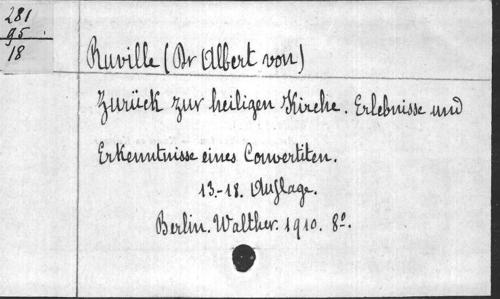 281
95
18
Ruville (Dr Albert von)
Zurück zur heiligen Kirche. Erlebnisse und
Erkenntnisse eines Convertiten.
13.-18. Auflage.
Berlin. Walther. 1910. 8°.